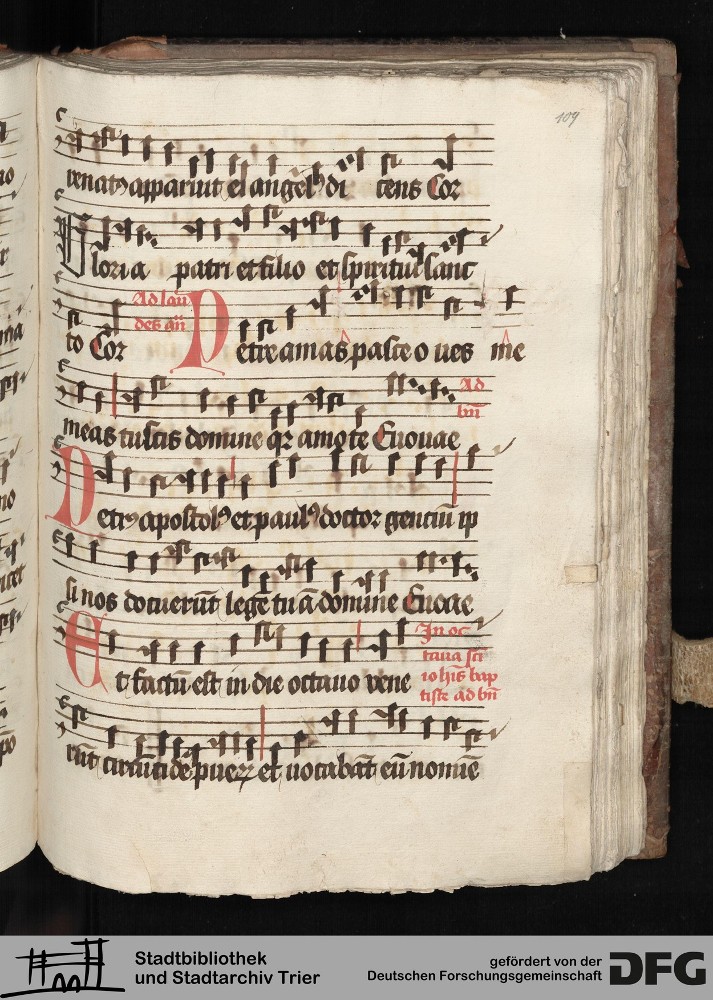 109
venatꝰ apparuit ei angelꝰ di cens Cor
Gloria patri et filio et spiritui sanc
to Cor Ad lau
des añ Petre amas pasce o ues me
meas tu scis domine qꝛ amo te Euouae Ad
bñ
Petrꝰ apostolꝰ et paulꝰ doctor gentiū ip
si nos docuerūt legē tuā domine Euouae
Et factū est in die octauo vene In oc
taua sci
iohis bap
tiste ad bñ
rūt circūcidē puerꝝ et uocabāt eū nomine
Stadtbibliothek
und Stadtarchiv Trier
gefördert von der
Deutschen Forschungsgemeinschaft
DFG